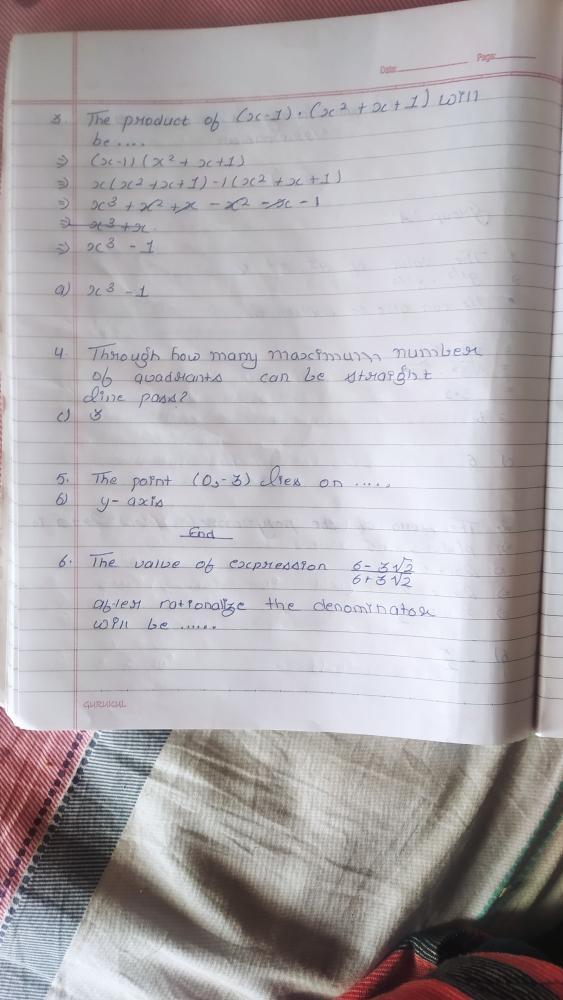 Date: Page:
3. The product of (x-1).(x² + x + 1) will
be....
⇒ (x-1)(x² + x+1)
⇒ x(x² + x + 1) -1(x² + x + 1)
⇒ x³ + x² + x - x² - x - 1
⇒ x³ + x
⇒ x³ - 1
a) x³ - 1
4. Through how many maximum number
of quadrants can be straight
line pass?
c) 3
5. The point (0,-3) lies on .....
b) y-axis
End
6. The value of expression 6-3√2
6+3√2
after rationalize the denominator
will be .....
GURUKUL